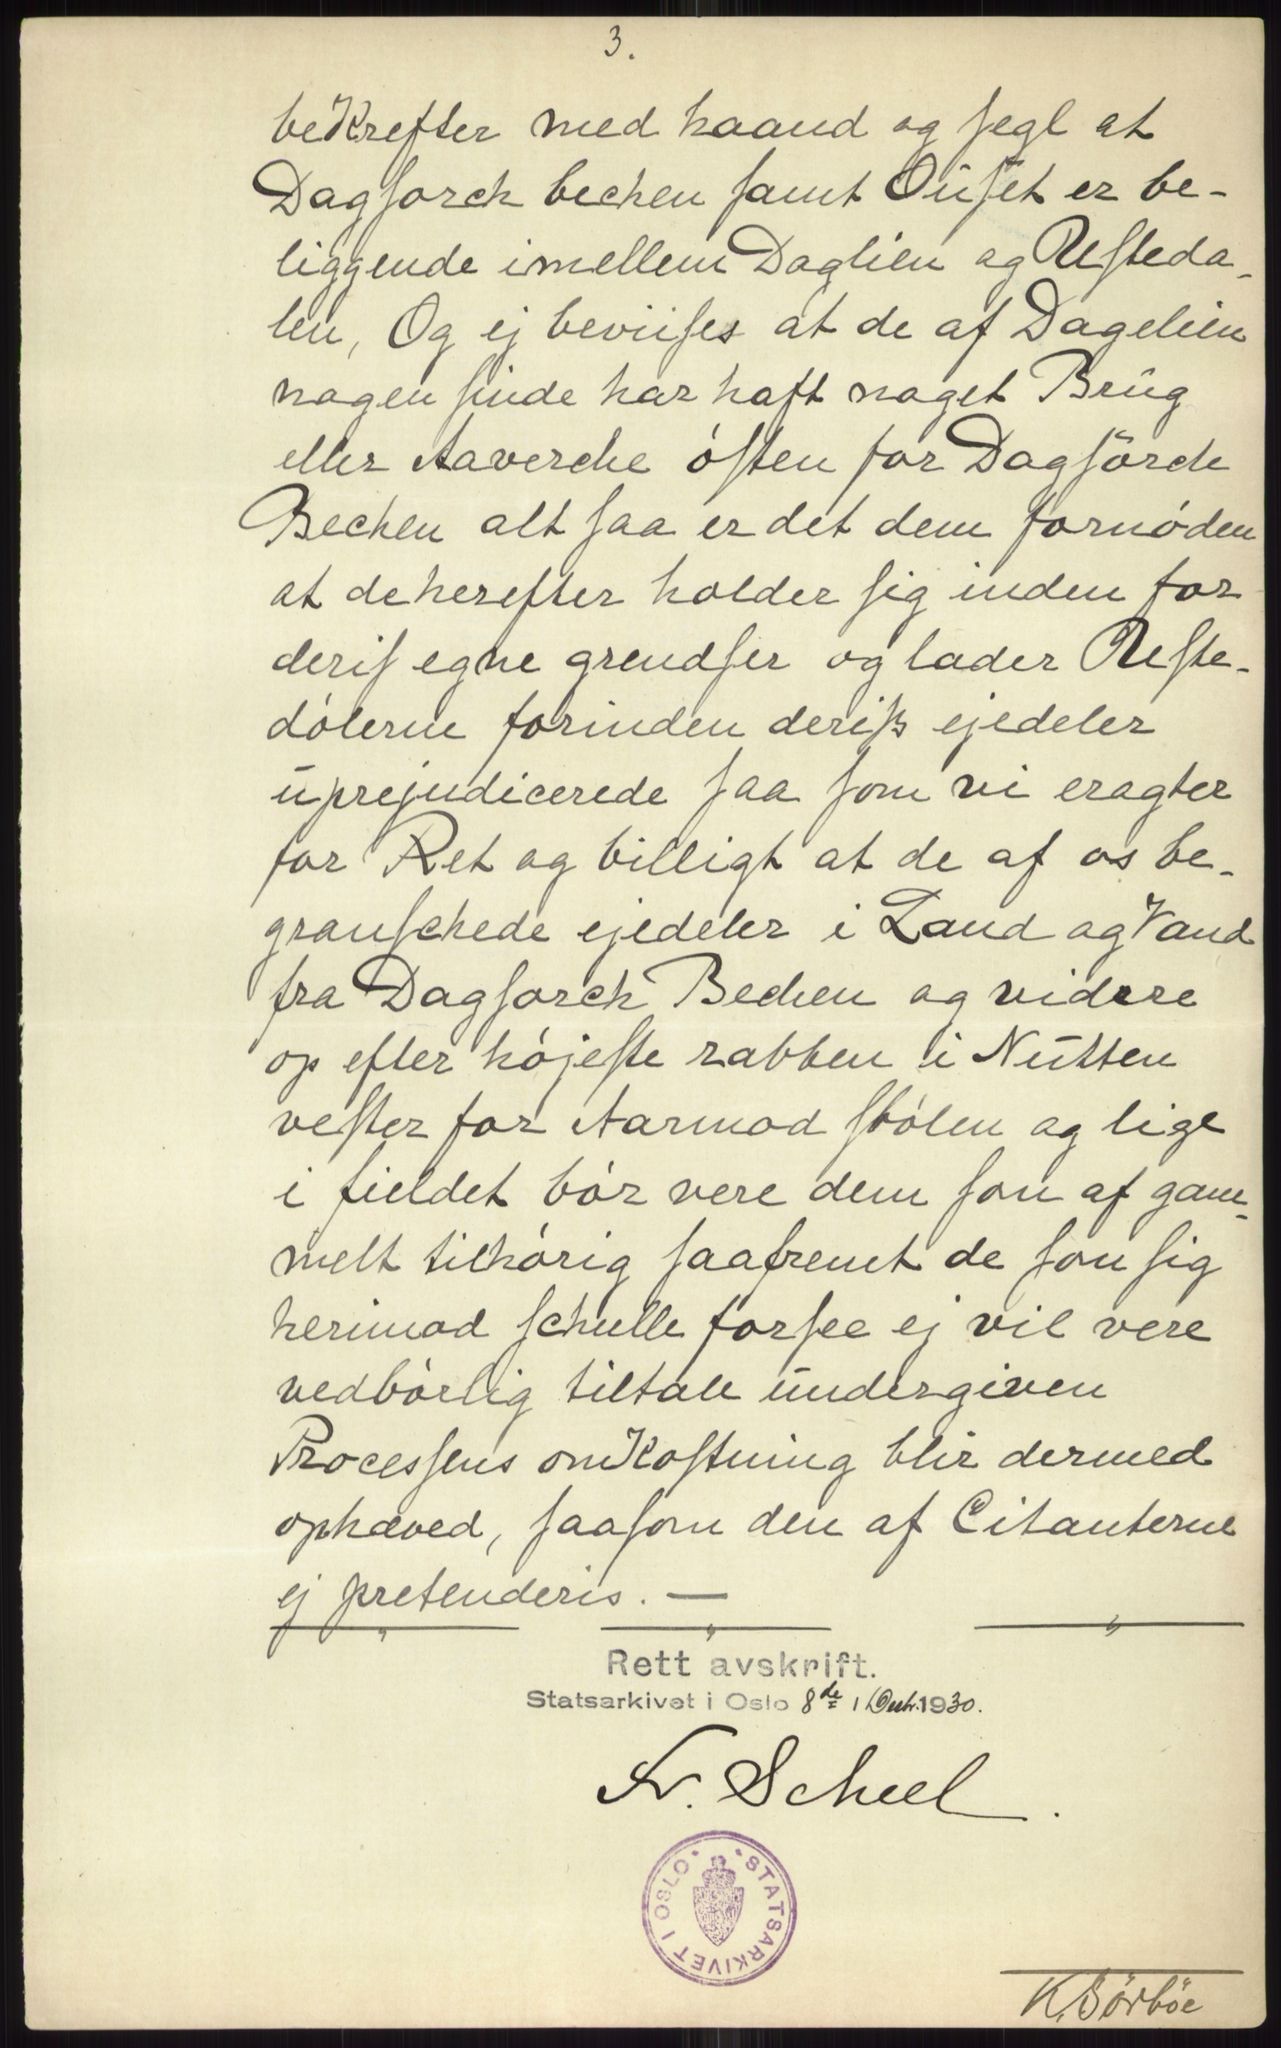 3.
beKrefter med haand og segl at
Dagsorck becken samt Oüset er be-
liggende imellem Daglien og Usteda-
len, Og ej beviises at de af Dagelien
nogen sinde har haft noget Brüg
eller Aaverche östen for Dagsörck
Becken alt saa er det dem fornöden
at de herefter holder sig inden for
deris egne grendser og lader Uste-
dölerne forinden deriss ejedeler
üprejudicerede saa som vi eragter
for Ret og billigt at de af os be-
granschede ejedeler i Land og Vand
fra Dagsorck Becken og videre
op efter höjeste rabben i Nütten
vester for Aarmod stölen og lige
i fieldet bör vere dem som af gam-
melt tilhörig saafremt de som sig
herimod schulle forsee ej vil vere
vedbörlig tiltale ündergiven
Processens omKostning blir dermed
ophæved, saasom den af Citanterne
ej pretenderis. —
Rett avskrift.
Statsarkivet i Oslo 8de 1930.
Fr. Scheel.
STATSARKIVET I OSLO
K. Börböe